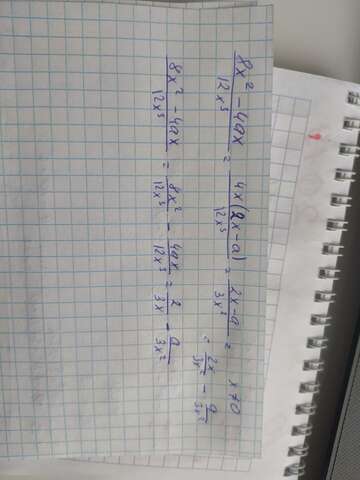 (8x² - 4ax)/(12x³) = (4x(2x-a))/(12x³) = (2x-a)/(3x²) = x≠0
= (2x)/(3x²) - a/(3x²)
(8x² - 4ax)/(12x³) = (8x²)/(12x³) - (4ax)/(12x³) = 2/(3x) - a/(3x²)